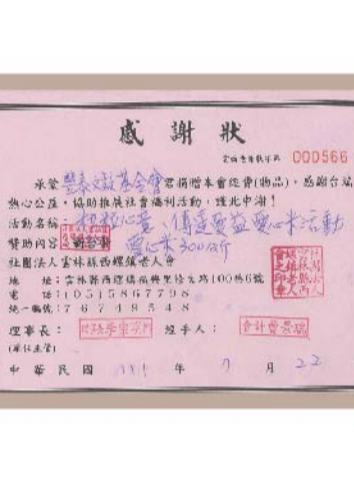 感謝狀
000566
承蒙 豐泰文教基金會 君捐贈本會經費(物品),感謝台端
熱心公益,協助推展社會福利活動,謹此申謝!
活動名稱: 粒粒心意、傳遞愛益 愛心米活動
贊助內容: 愛心米300台斤
社團法人雲林縣西螺鎮老人會
地 址:雲林縣西螺鎮福興里修文路100巷6號
電 話:(05)5867798
統一編號:76749548
理事長: 經手人: 會計曾景瑞
(單位主管)
中華民國 111 年 7 月 22